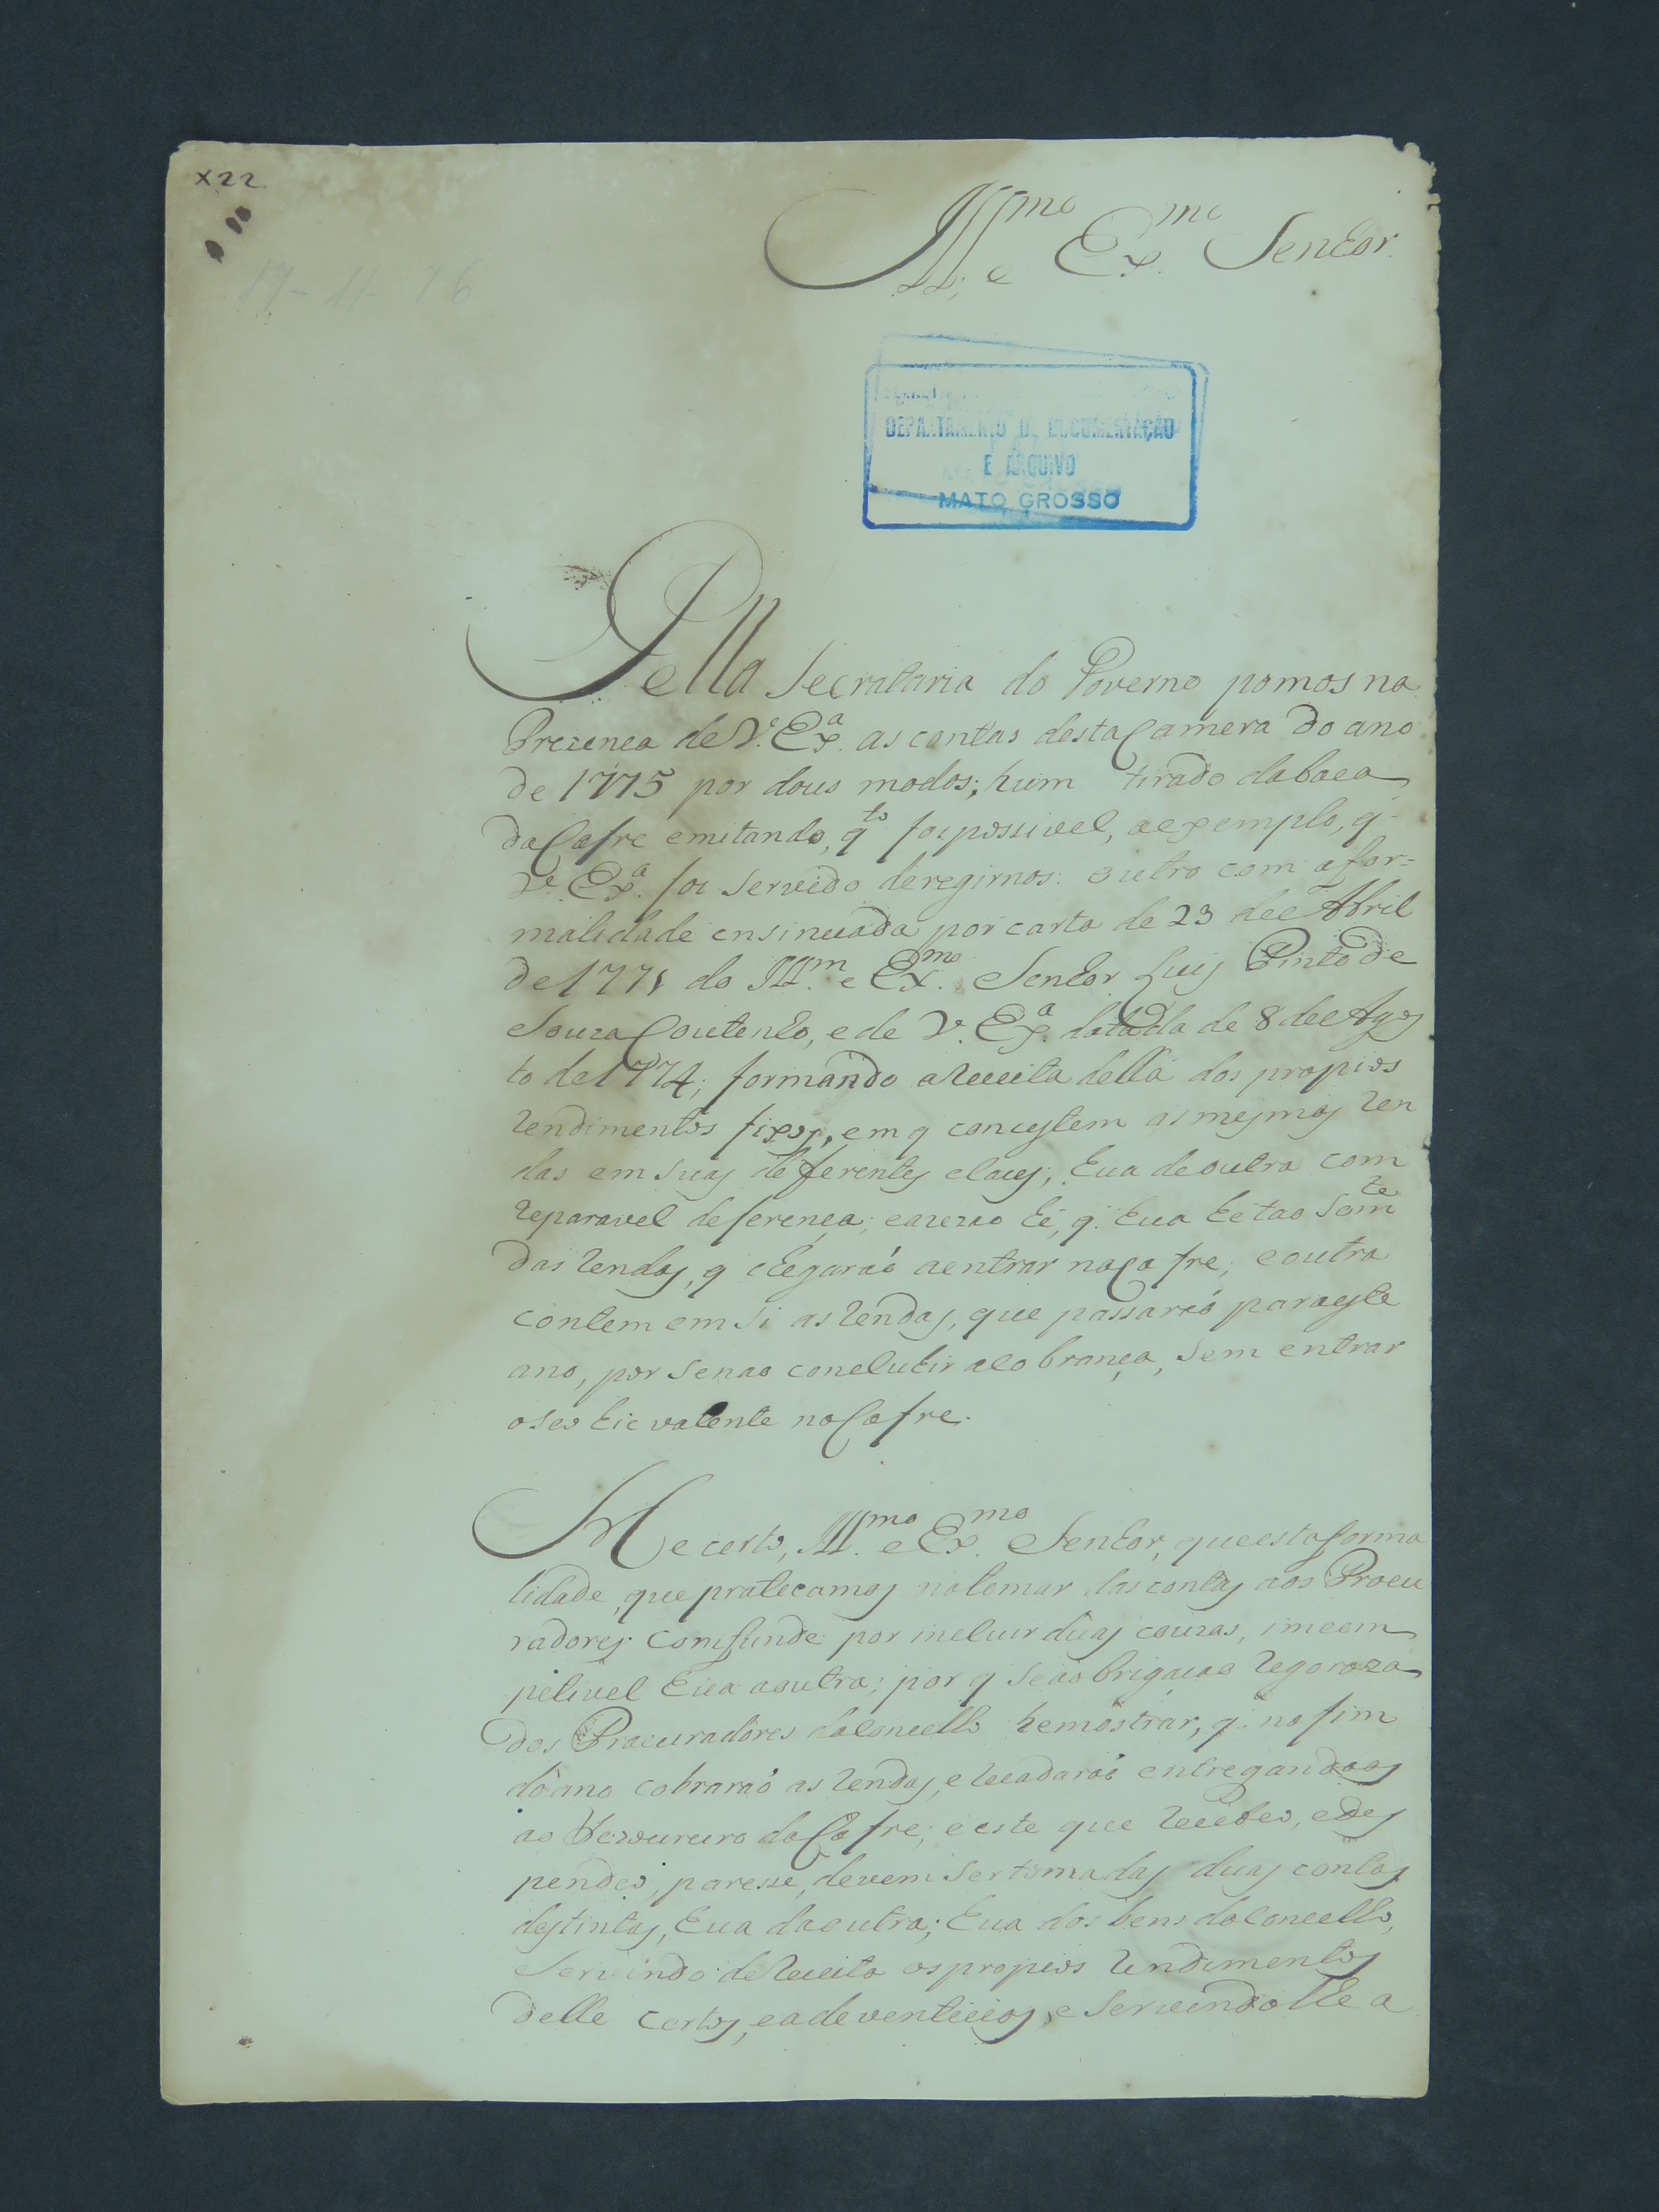 x22
17-11-76
Ill.mo e Ex.mo Senhor.
DEPARTAMENTO DE DOCUMENTAÇÃO
E ARQUIVO
MATO GROSSO
Pella Secrataria do Governo pomos na
Prezença de V. Ex.a as contas desta Camera do ano
de 1775 por dous modos; hum tirado da baca
do Cofre emitando, q.to foi possivel, ao exemplo, q.
V. Ex.a foi servido deregirnos: outro com a for=
malidade ensinuada por carta de 23 de Abril
de 1771 do Ill.m e Ex.mo Senhor Luis Pinto de
Souza Coutenho, e de V. Ex.a datada de 8 de Agos
to de 1774; formando a Receita della dos propios
Rendimentos fixos, em q concestem as mesmas Ren
das em suas deferentes claces, hua de outra com
Reparavel deferença; e a rezao hé, q. hua he tao som.te
das Rendas, q chegaraó a entrar no Cofre; e outra
contem em si as Rendas, que passaraó para este
ano, por se nao concluhir a cobrança, sem entrar
o seo hicvalente no Cofre.
He certo, Ill.mo e Ex.mo Senhor, que esta forma
lidade, que pratecamos no tomar das contas aos Procu
radores comfunde por incluir duas couzas, imcom
petivel hua a outra; por q se a obrigacao Regoroza
dos Procuradores do Concello he mostrar, q. no fim
do ano cobraraó as Rendas, e Recadaraó entregandoas
ao Thezoureiro do Cofre; e este que Recebeo, e des
pendeo, paresse, devem ser tomadas duas contas
destintas, hua da outra; hua dos bens do Concello,
Servindo de Receita os propios Rendimentos
delle certos, e adeventicios, e servindolhe a